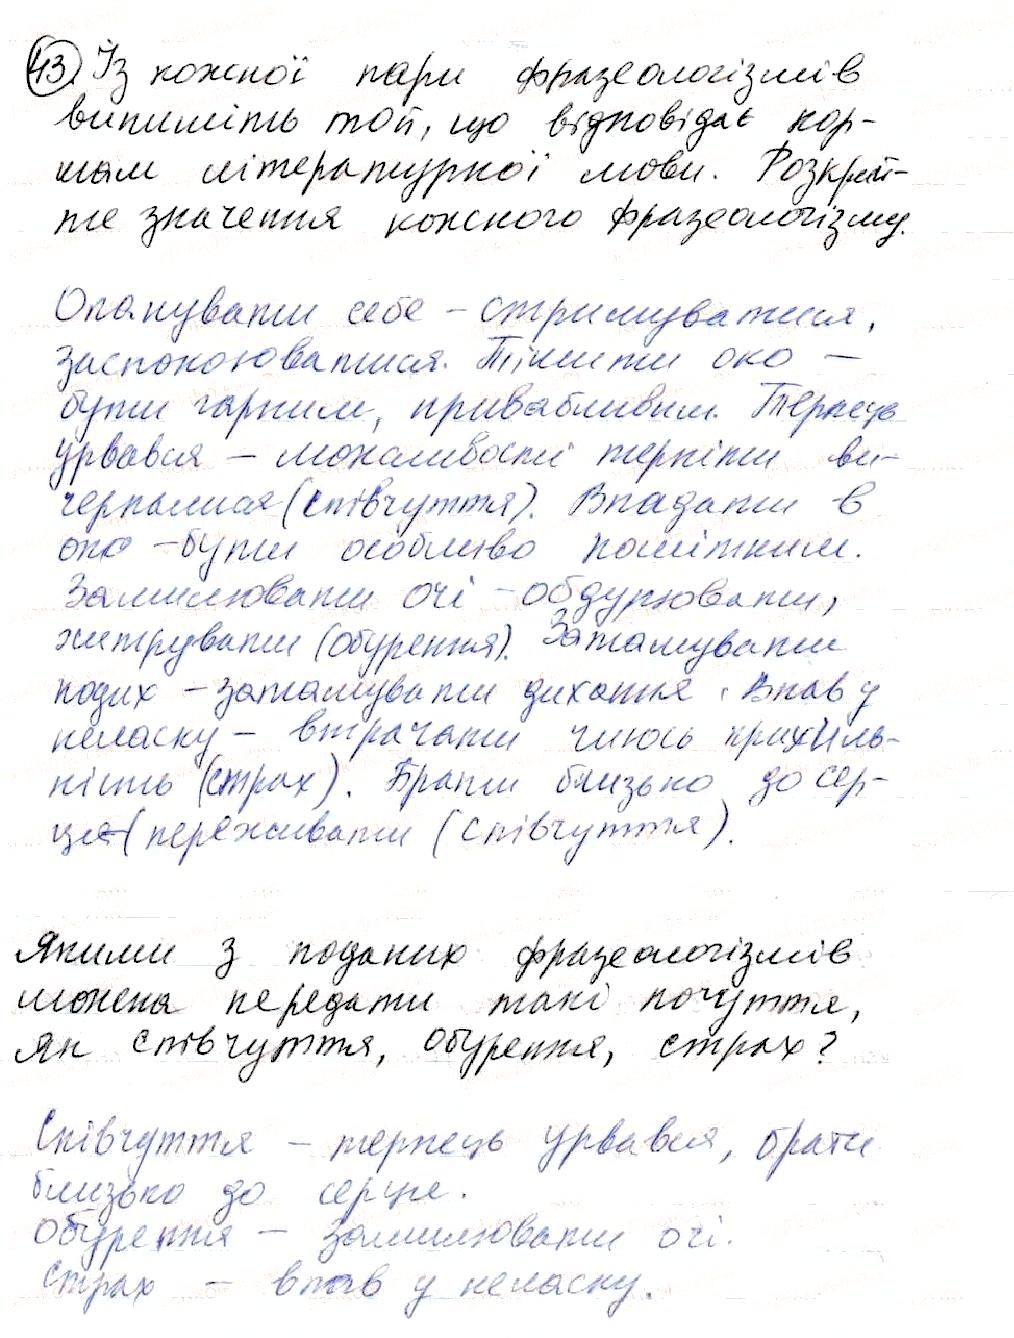 43. Із кожної пари фразеологізмів
випишіть той, що відповідає нор-
мам літературної мови. Розкрий-
те значення кожного фразеологізму.
Опанувати себе - стримуватися,
заспокоюватися. Тішити око -
бути гарним, привабливим. Терпець
урвався - можливості терпіти ви-
черпалися (співчуття). Впадати в
око - бути особливо помітним.
Замилювати очі - обдурювати,
хитрувати (обурення). Затамувати
подих - затамувати дихання. Впав у
неласку - втрачати чиюсь прихиль-
ність (страх). Брати близько до сер-
ця (переживати (співчуття).
Якими з поданих фразеологізмів
можна передати такі почуття,
як співчуття, обурення, страх?
Співчуття - терпець урвався, брати
близько до серце.
Обурення - замилювати очі.
Страх - впав у неласку.